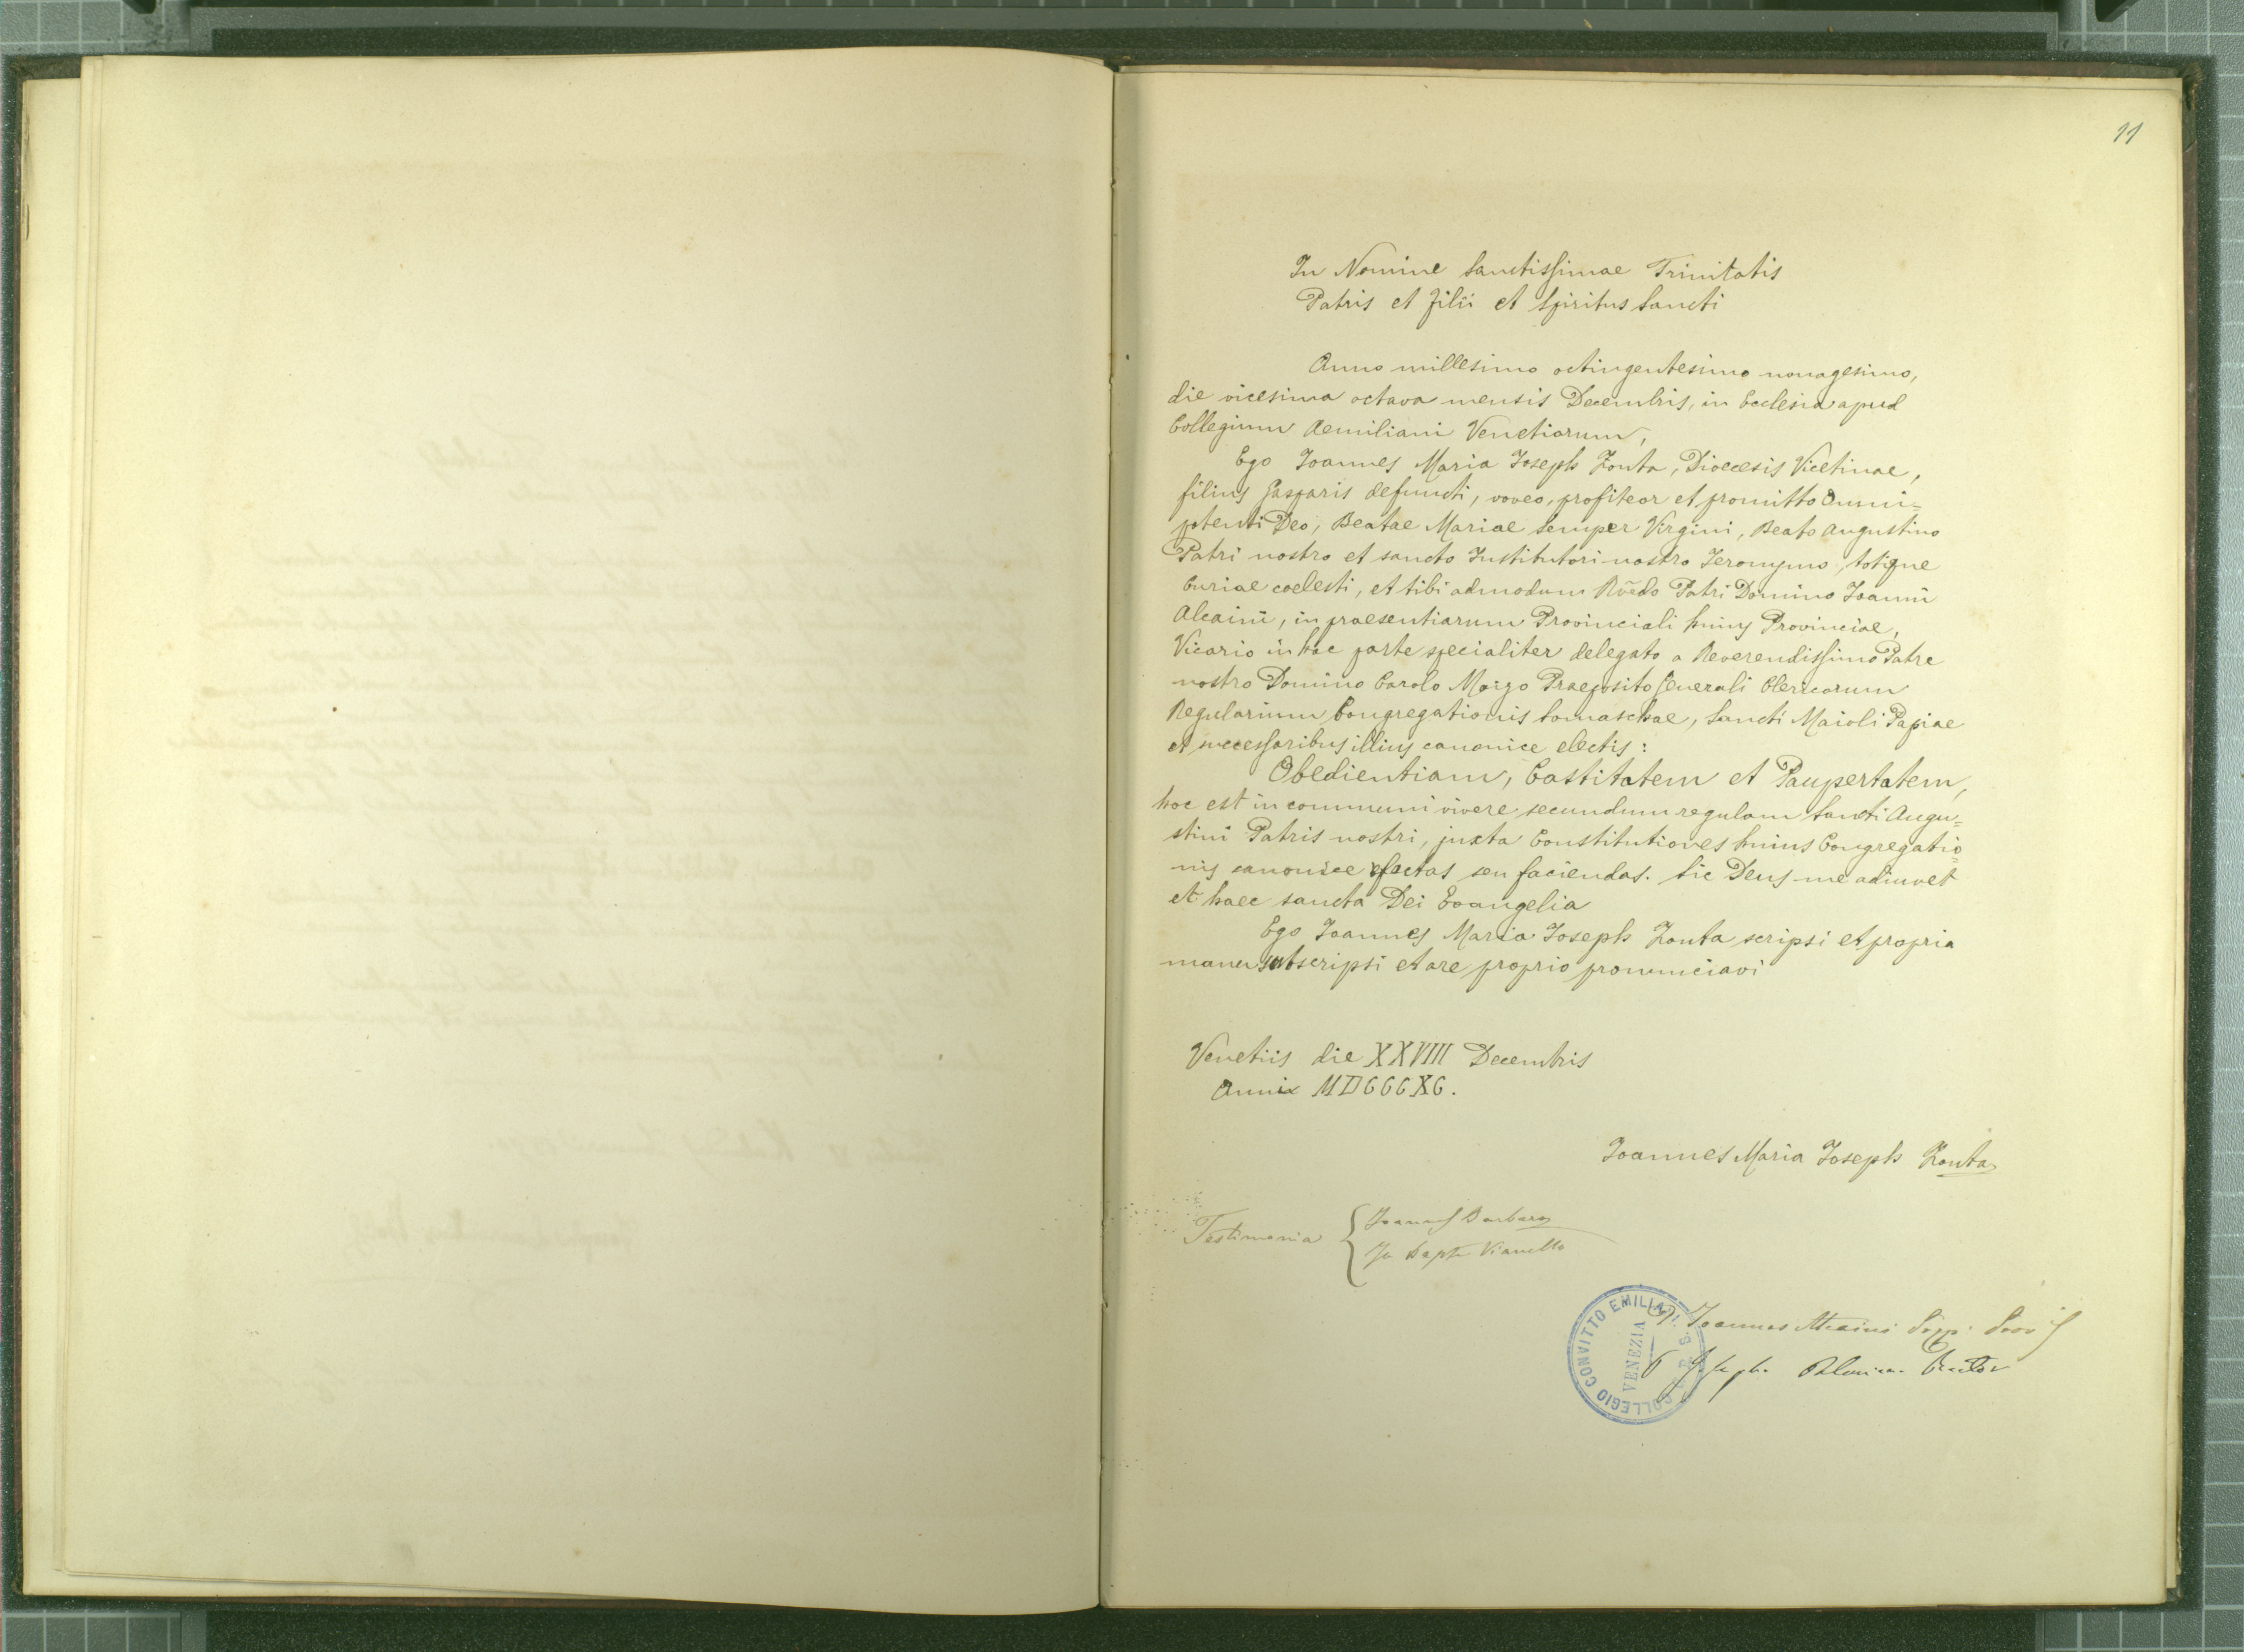 11
In Nomine Sanctissimae Trinitatis
Patris et Filii et Spiritus Sancti
Anno millesimo octingentesimo nonagesimo,
die vicesima octava mensis Decembris, in Ecclesia apud
Collegium Aemiliani Venetiarum,
Ego Joannes Maria Joseph Zonta, Dioecesis Vicetinae,
filius Gasparis defuncti, voveo, profiteor et promitto Omni=
potenti Deo, Beatae Mariae semper Virgini, Beato Augustino
Patri nostro et sancto Institutori nostro Jeronymo, totique
Curiae coelesti, et tibi admodum Rñdo Patri Domino Joanni
Alcaini, in praesentiarum Provinciali huius Provinciae,
Vicario in hac parte specialiter delegato a Reverendissimo Patre
nostro Domino Carolo Moizo Praeposito Generali Clericorum
Regularium Congregationis Somaschae, Sancti Maioli Papiae
et successoribus illius canonice electis:
Obedientiam, Castitatem et Paupertatem,
hoc est in communi vivere secundum regulam Sancti Augu=
stini Patris nostri, juxta Constitutiones huius Congregatio=
nis canonice factas seu faciendas. Sic Deus me adiuvet
et haec sancta Dei Evangelia
Ego Joannes Maria Joseph Zonta scripsi et propria
manu subscripsi et ore proprio pronunciavi
Venetiis die XXVIII Decembris
Anni MDCCCXC.
Joannes Maria Joseph Zonta
Testimonia { Joannes Barbaro
Jo Bapta Vianello
COLLEGIO CONVITTO EMILIANI
VENEZIA
Joannes Alcaini Prep. Prov
Joseph Palmieri Rector